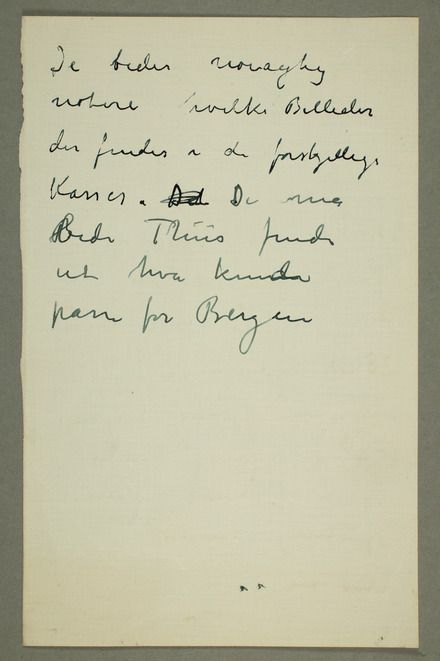 De beder nøiagtig
notere hvilke Billeder
der findes i de forskjellige
Kasser. De må
Bede Thiis finde
ut hva kunde
passe for Bergen